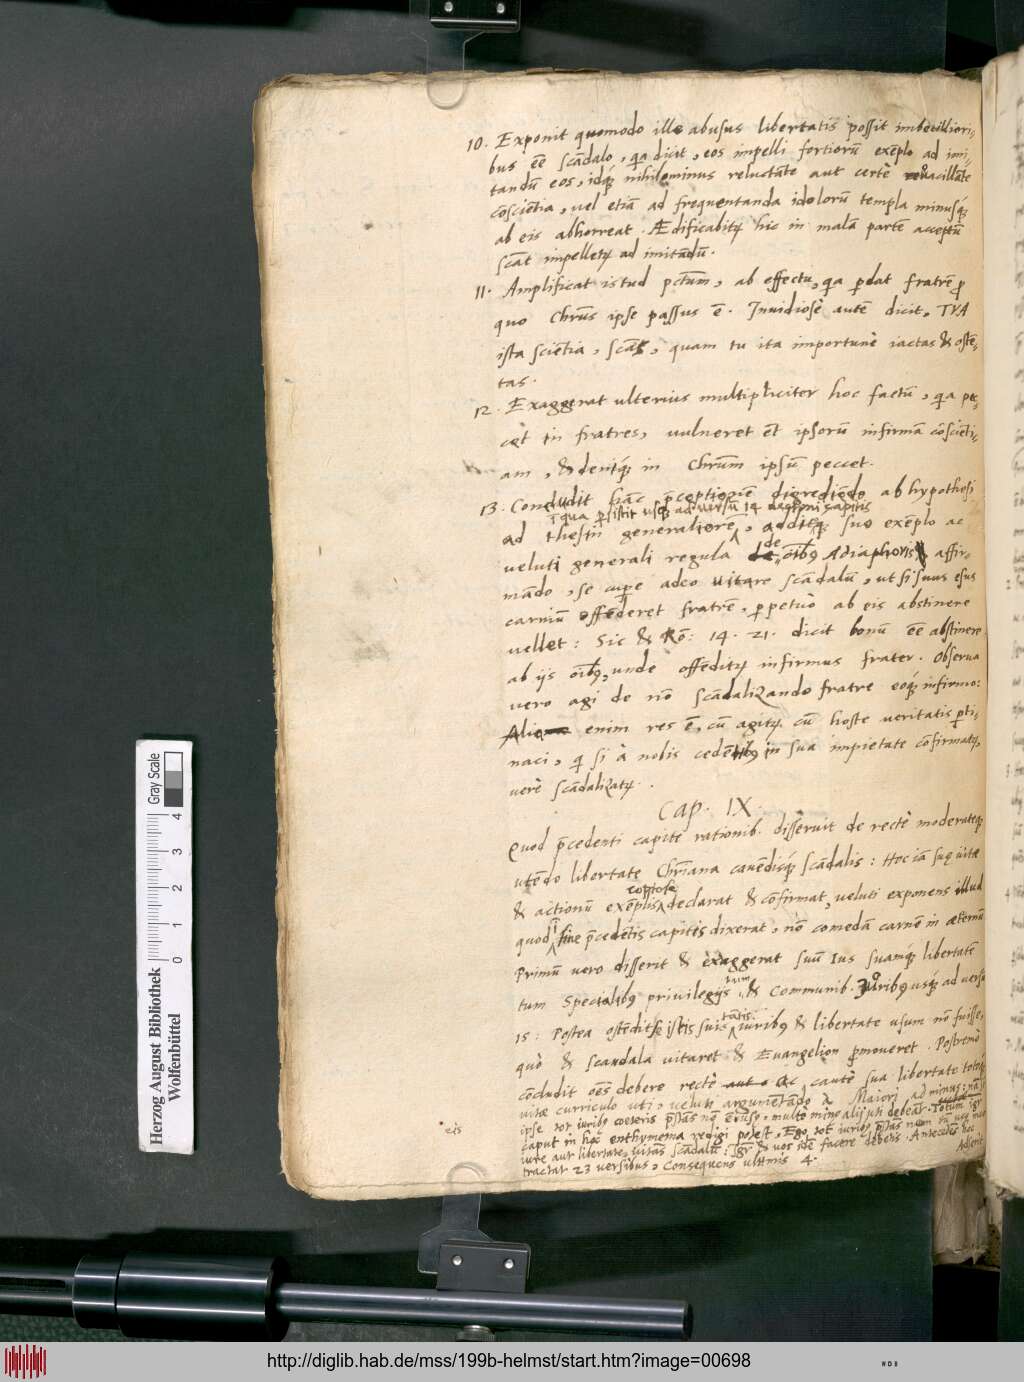 10. Exponit quomodo ille abusus libertatis possit imbecilliori-
bus eē scādalo, qa dicit, eos impelli fortiorū exēplo ad imi-
tandū eos, idq́ nihilominus reluctāte aut certè vacillāte
cōsciētia, vel etiā ad frequentanda idolorū templa minusq́
ab eis abhorreat. Ædificabitr hic in malā partē acceptū
scāt impelletr ad imitādū.
11. Amplificat istud pctum, ab effectu, qa pdat fratrē p
quo Chrūs ipse passus ē. Inuidiosè autē dicit, TVA
ista sciētia, scāt, quam tu ita importunè iactas & ostē-
tas.
12. Exaggerat ulterius multipliciter hoc factū, qa pec-
cet in fratres, vulneret et ipsorū infirmā cōsciēti-
am, & deniq́ in Chrūm ipsū peccet.
13. Concludit hāc pceptionē digrediēdo ab hypothesi
ī qua psistit usq ad versū 14 sequentis capitis
ad thesin generaliorē, additq suo exēplo ac
veluti generali regula de oībq Adiaphoris affir-
mādo, se cupe adeo vitare scādalū, ut si suus esus
carniū offēderet fratrē, ppetuò ab eis abstinere
vellet: Sic & Rō: 14. 21. dicit bonū eē abstinere
ab iis oībq, unde offēditr infirmus frater. Observa
vero agi de nō scādalizando fratre eoq́ infirmo:
Alia enim res ē, cū agitr cū hoste veritatis pti-
naci, q si à nobis cedētibq in sua impietate cōfirmatr,
verè scādalizatr.
Cap. IX.
Quod pcedenti capite rationib. disseruit de rectè moderateq
utēdo libertate Chrīana cauēdisq́ scādalis: Hoc iā suę uitæ
copiose
& actionū exēplis declarat & cōfirmat, veluti exponens illud
quod ī fine pcedētis capitis dixerat, nō comedā carnē in æternū
Primū vero disserit & exaggerat suū Ius suamq́ libertatē
tum Specialibq privilegiis, tum & Communib. Iuribq usq́ ad versū
15: Postea ostēdit se istis suis iuribq & libertate usum nō fuisse,
quò & scandala vitaret & Euangelion pmoveret. Postremò
cōcludit oēs debere rectè ac cautè sua libertate
vitæ curriculo uti, veluti argumētādo à Maiori ad minus:
ipse tot iuribq cæteris
caput in hoc enthymema redigi potest, Ego tot iuribq
iure aut libertate, vitās scādala: igr & vos idē facere debetis. Antecedēs hoc
tractat 23 versibus, Consequens ultimis 4.
eis
Adserit
Herzog August Bibliothek
Wolfenbüttel
0 1 2 3 4
Gray Scale
http://diglib.hab.de/mss/199b-helmst/start.htm?image=00698
WDB